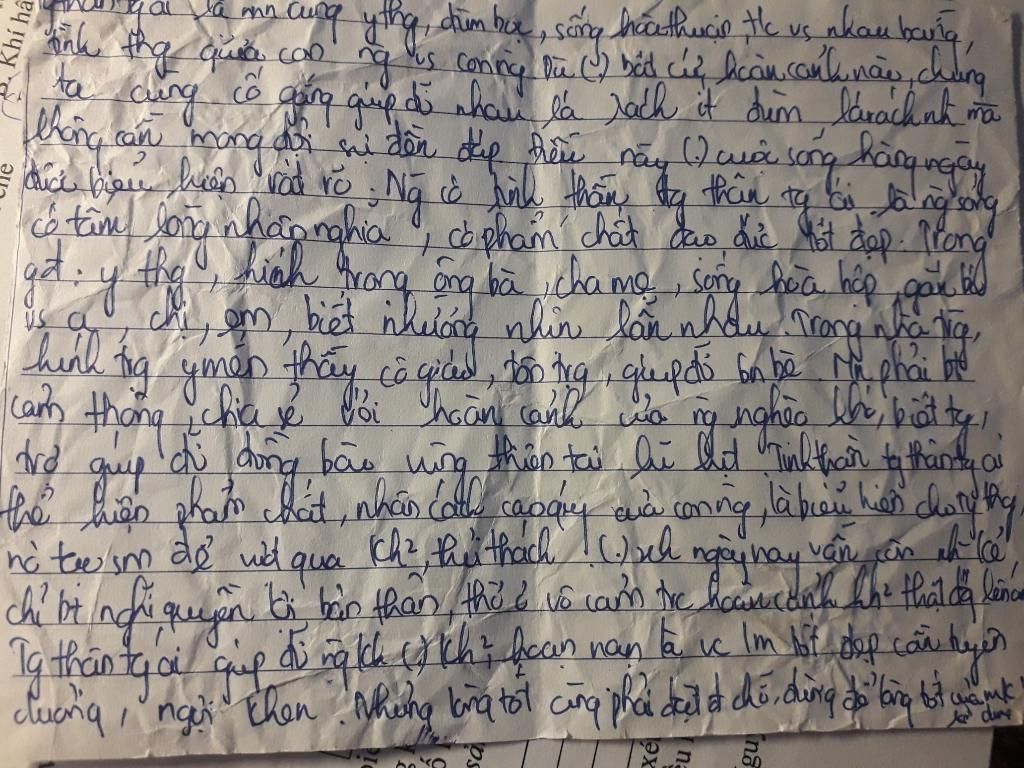 ái là mn cùng y thg, đùm bọc, sống hòa thuận, t/c vs nhau bằng,
tình thg giữa con ng vs con ng. Dù (.) bất cứ hoàn cảnh nào, chúng
ta cũng cố gắng giúp đỡ nhau lá rách ít đùm lá rách nh mà
không cần mong đợi sự đền đáp. Điều này (.) cuộc sống hàng ngày
đc biểu hiện rất rõ: Ng có tinh thần tg thân tg ái là ng sống
có tâm lòng nhân nghĩa, có phẩm chất đạo đức tốt đẹp. Trong
gđ: y thg, kính trong ông bà, cha mẹ, sống hòa hợp, gắn bó
vs a, chị, em, biết nhường nhịn lẫn nhau. Trong nhà trg,
kính trg y mến thầy cô giáo, tôn trg, giúp đỡ bn bè. Mn phải bt
cảm thông, chia sẻ với hoàn cảnh của ng nghèo khó, biết ty,
trợ giúp đỡ đồng bào vùng thiên tai lũ lụt. Tinh thần tg thân tg ái
thể hiện phẩm chất, nhân cách cao qúy của con ng, là biểu hiện cho ng thg,
nó tạo sm để vượt qua kh², thử thách. (.) xh ngày nay vẫn còn nh kẻ
chỉ bt nghĩ quyền lợi bản thân, thờ ơ vô cảm trc hoàn cảnh kh² thật đg lên án
Tg thân tg ái giúp đỡ ng kh (.) kh², hoạn nạn là vc lm tốt đẹp cần tuyên
dương, ngợi khen. Nhưng lòng tốt cũng phải đặt đ chỗ, đừng để lòng tốt của mk